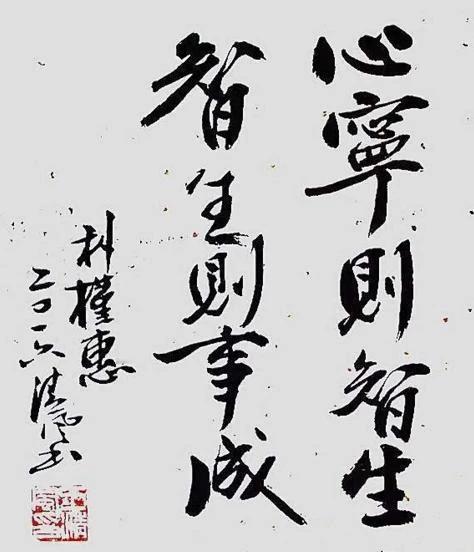 心寧則智生
智生則事成
朴槿惠
二〇一六清风书